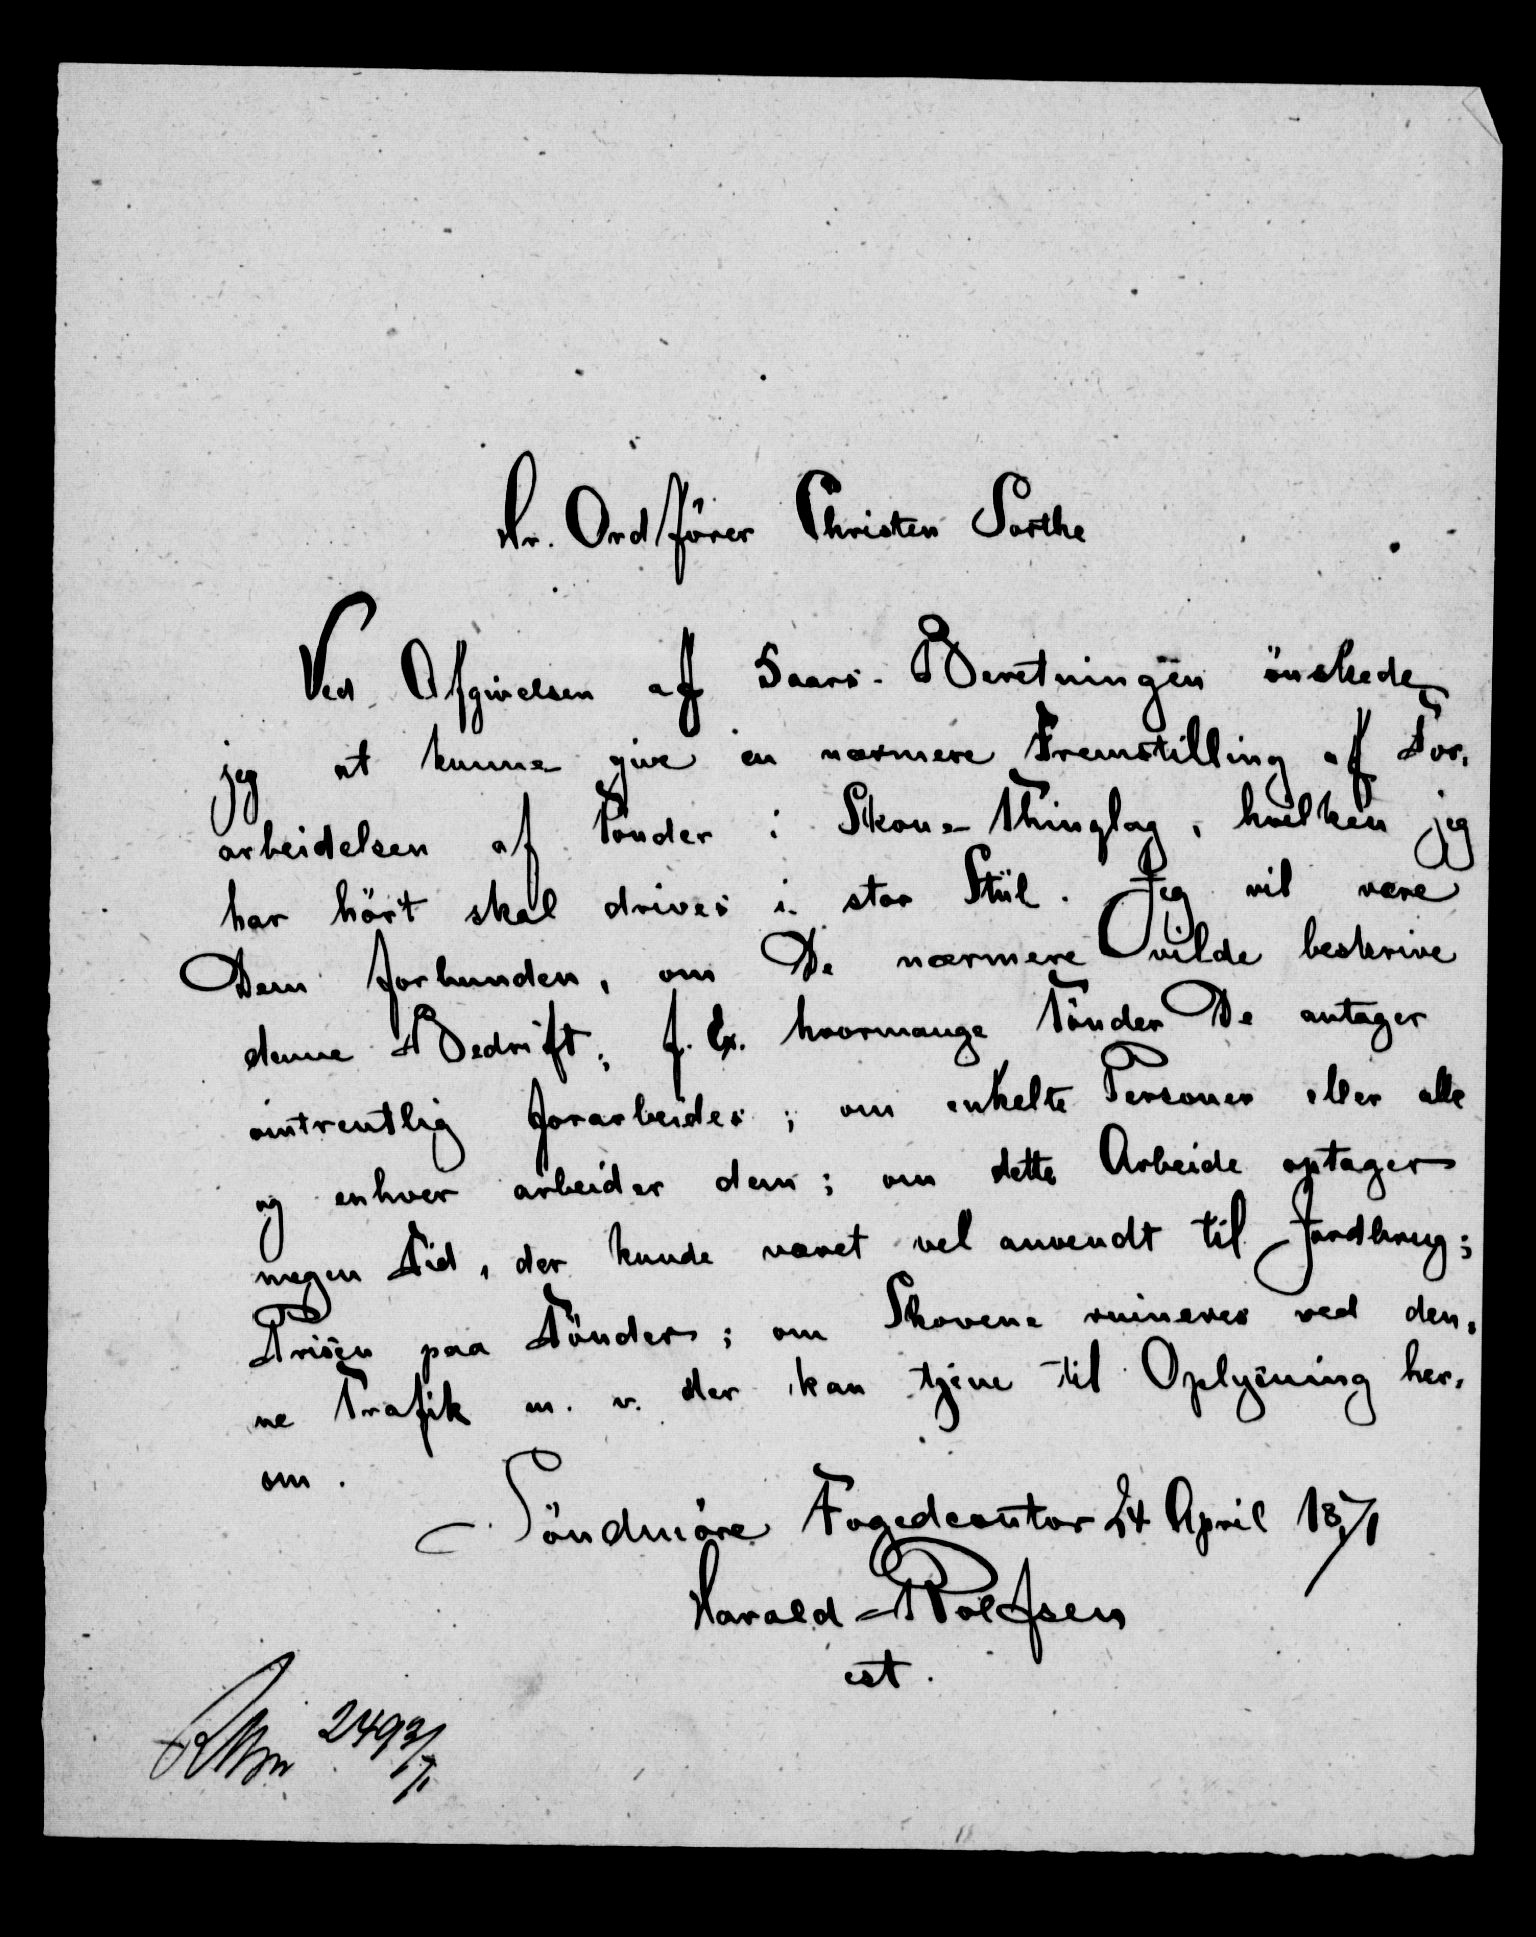 Hr. Ordförer Christen Sorthe
Ved Afgivelsen af 5aars-Beretningen önskede
jeg at kunne give en nærmere Fremstilling af For,
arbeidelsen af Tönder i Skoue Thinglag, hvilken jeg
har hört skal drives i stor Stiil. Jeg vil være
Dem forbunden, om De nærmere vilde beskrive
denne Bedrift; f. Ex. hvormange Tönder De antager
omtrentlig forarbeides; om enkelte Personer eller alle
og enhver arbeider dem; om dette Arbeide optager
megen Tid, der kunde været vel anvendt til Jordbrug;
Prisen paa Tönder; om Skovene ruineres ved den,
ne Trafik m. v. der kan tjene til Oplysning her,
om.
Söndmöre Fogedcontor 24 April 1871
Harald Rolfsen
cst.
2493/71